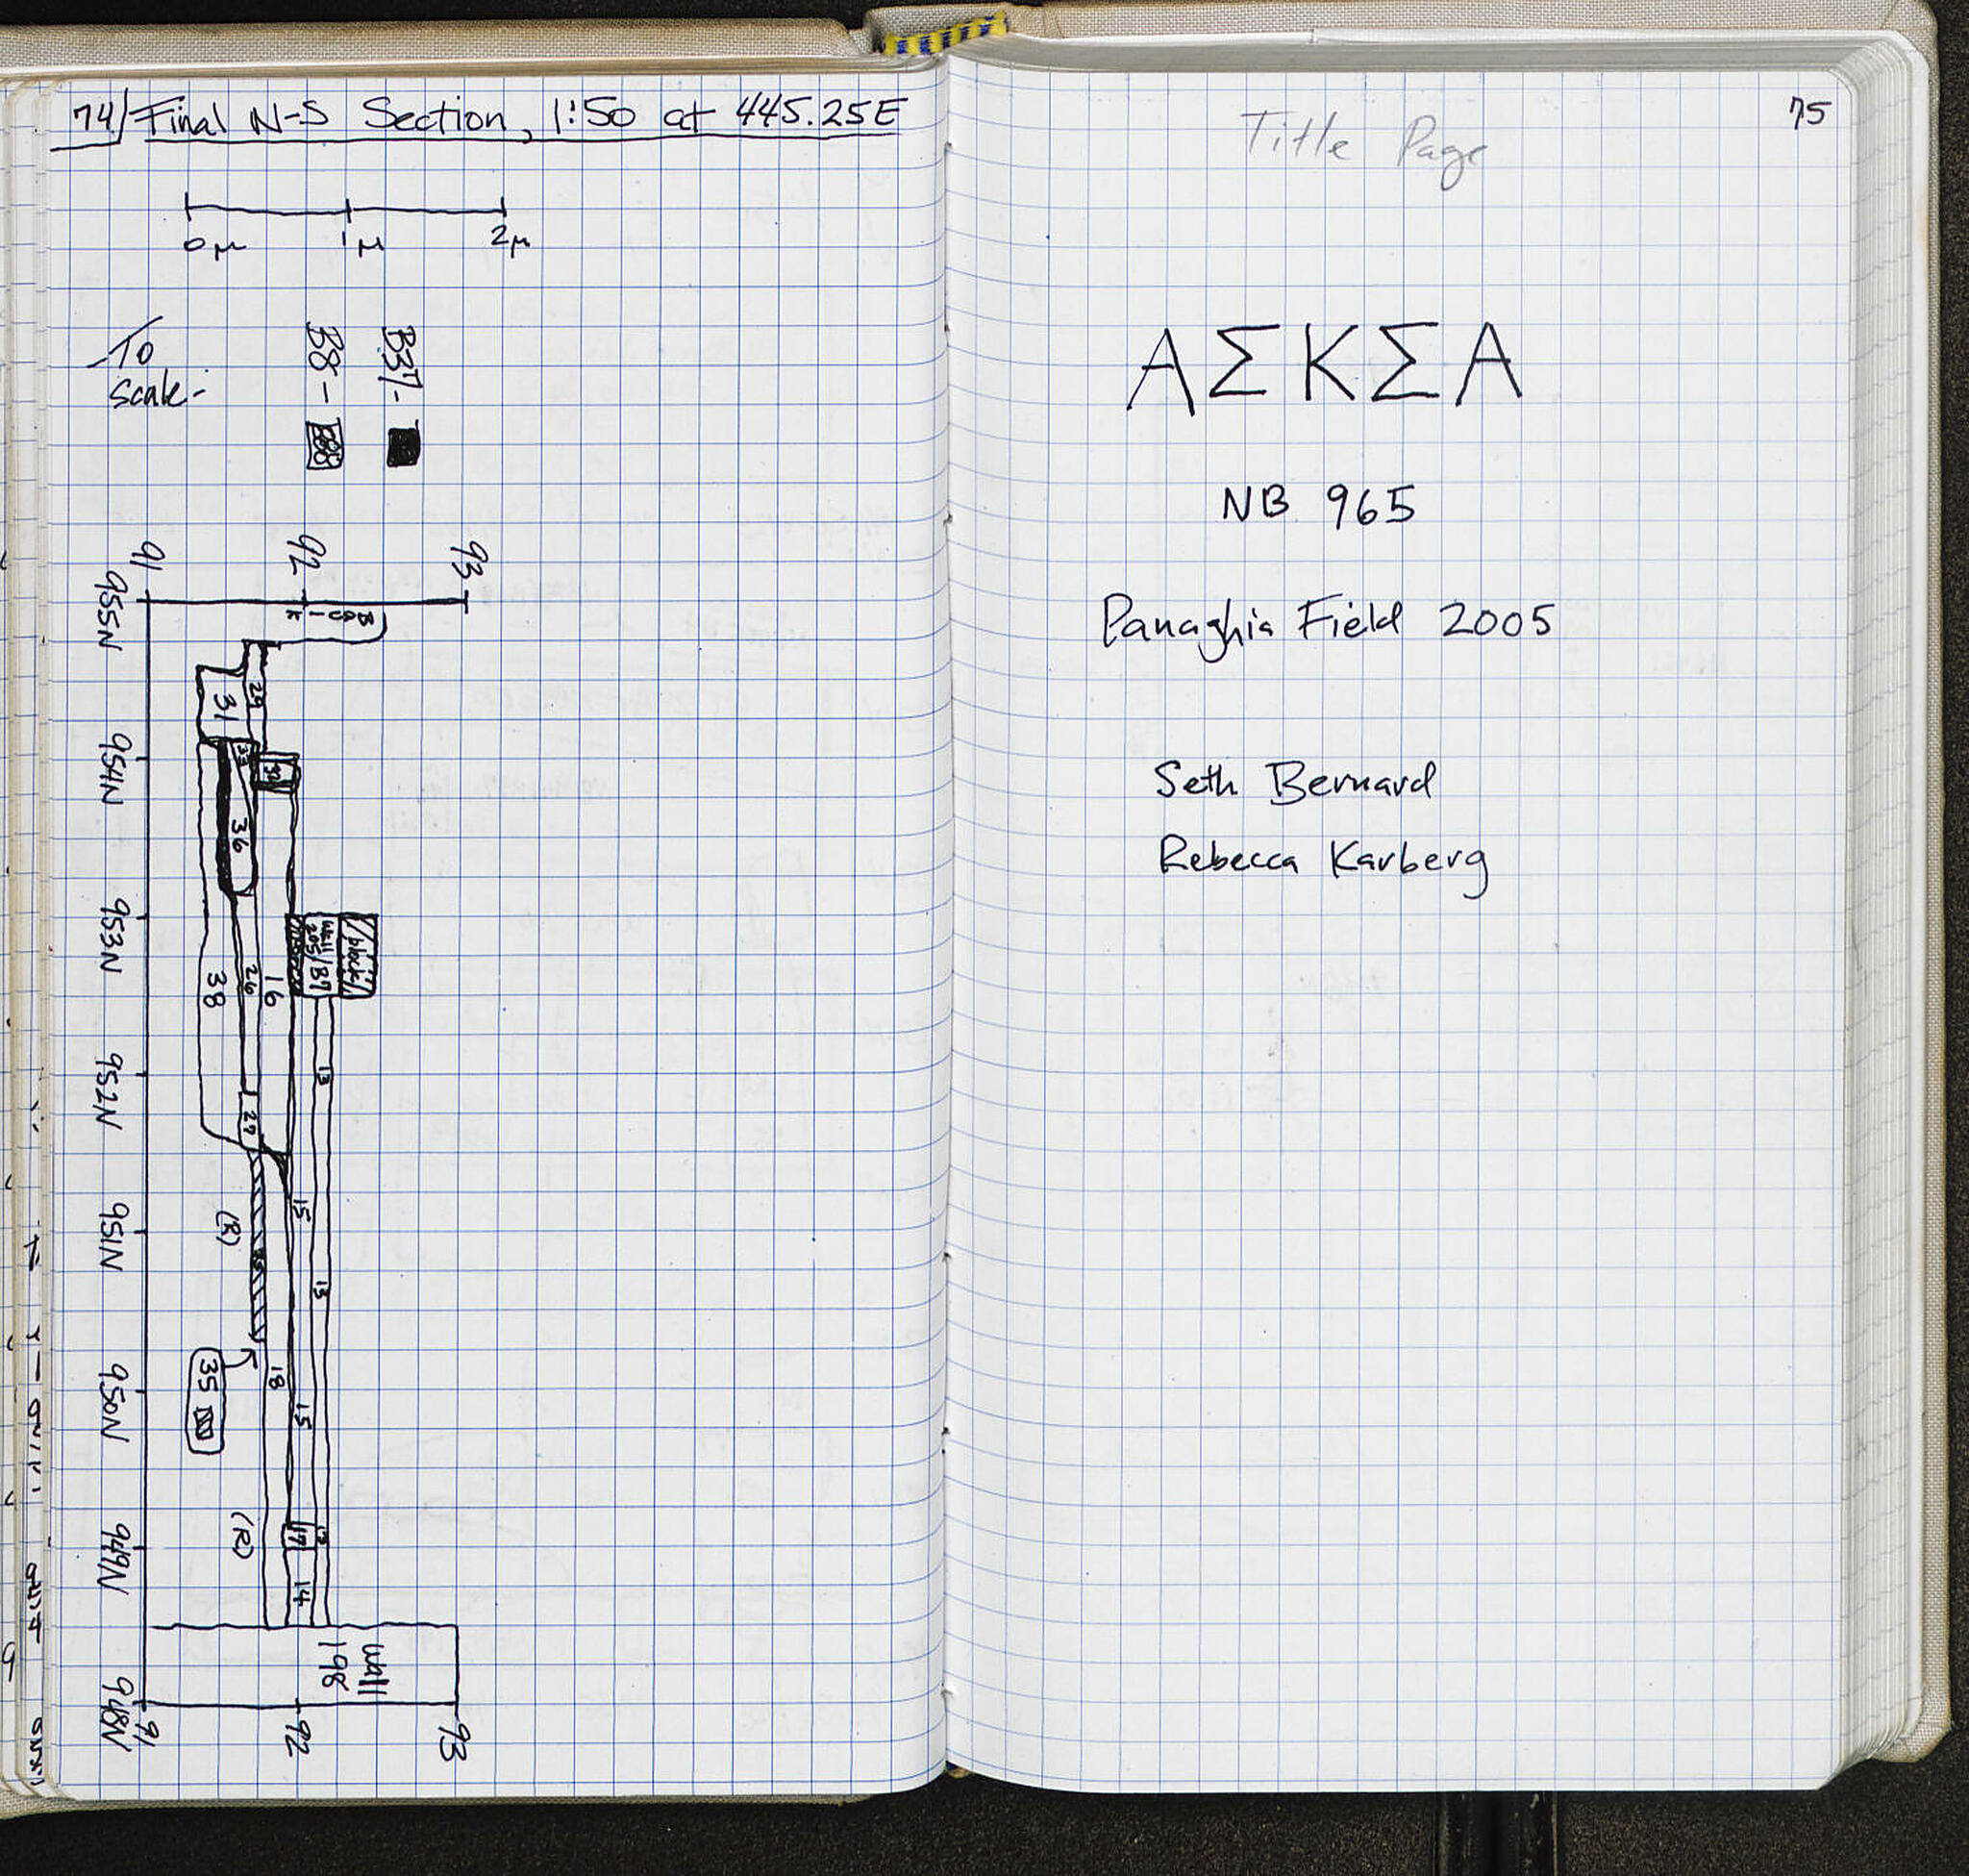 74/ Final N-S Section, 1:50 at 445.25E
0μ 1μ 2μ
To
scale-
B37-
B8-
93
92
91
955N
29
31
33
32
954N
36
block
Wall
205/B9
953N
16
26
38
13
952N
27
15
(R)
951N
13
18
35
15
950N
(R)
17
13
14
949N
Wall
198
948N
91
92
93
75
Title Page
ΑΣΚΣΑ
NB 965
Panaghia Field 2005
Seth Bernard
Rebecca Karberg